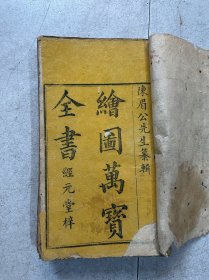 陳眉公先生纂輯
繪圖萬寶
全書
經元堂梓